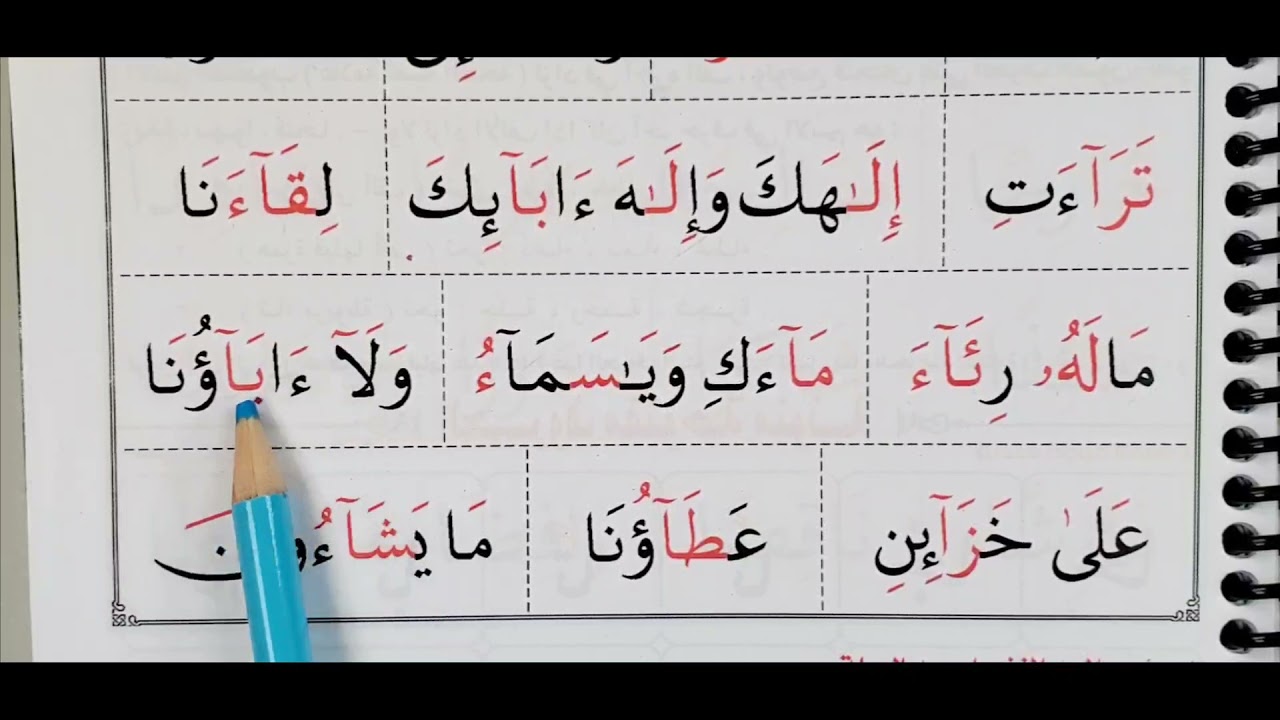 تَرَآءَتِ إِلَٰهَكَ وَإِلَٰهَ ءَابَآئِكَ لِقَآءَنَا
مَالَهُۥ رِئَآءَ مَآءَكِ وَيَٰسَمَآءُ وَلَآ ءَابَآؤُنَا
عَلَىٰ خَزَآئِنِ عَطَآؤُنَا مَا يَشَآءُونَ